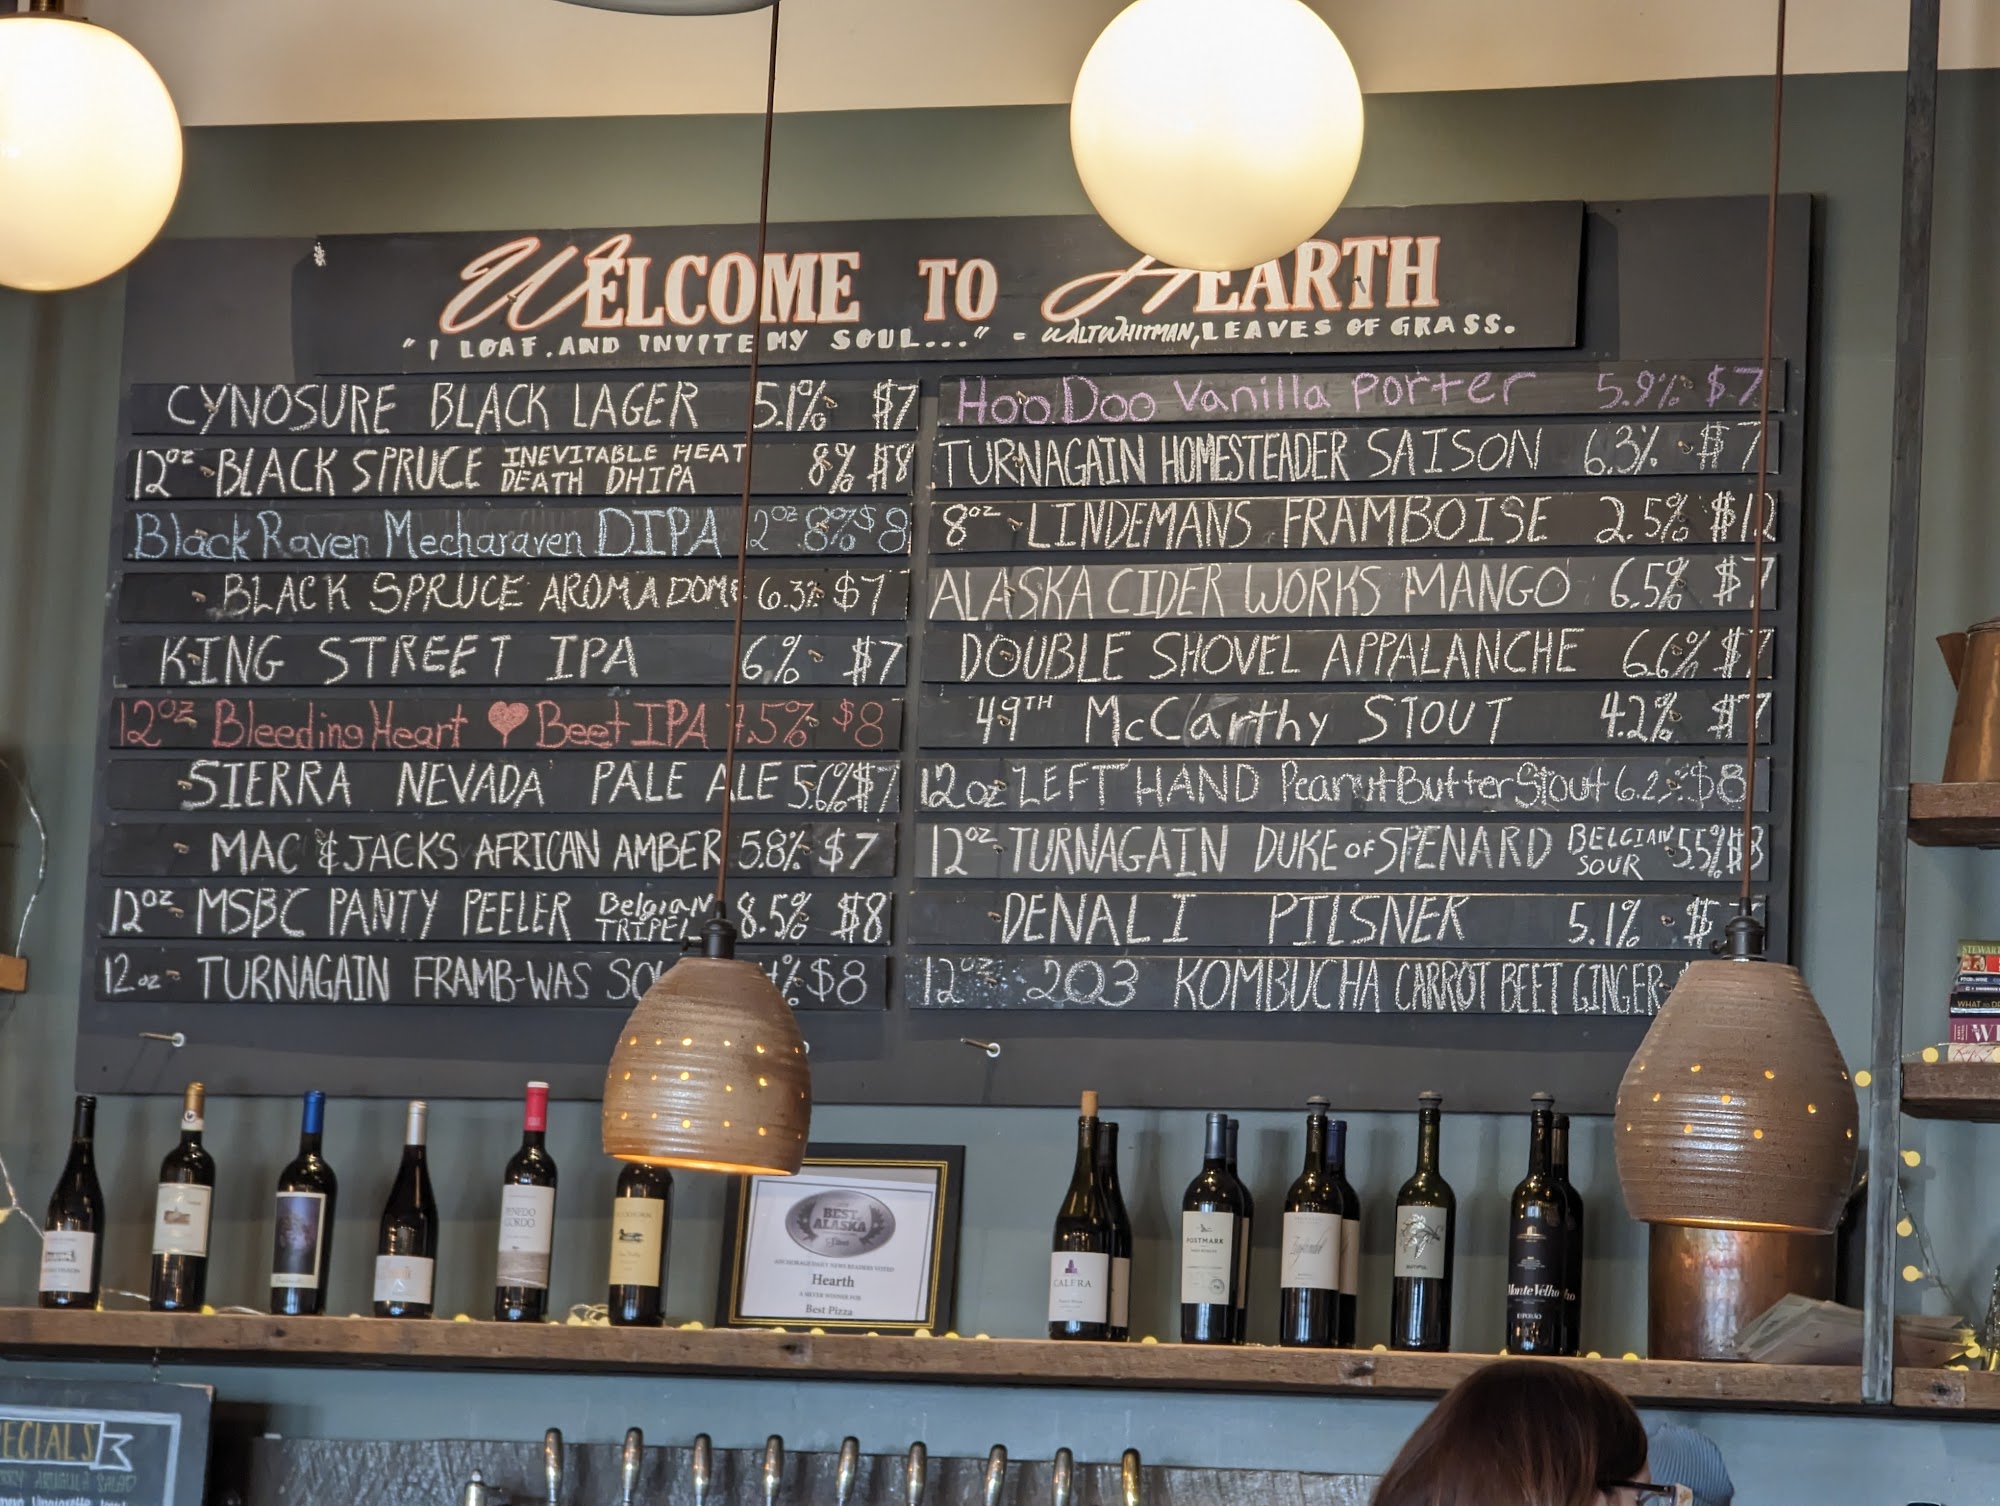 WELCOME TO HEARTH
"I LOAF AND INVITE MY SOUL..." - WALT WHITMAN, LEAVES OF GRASS.
CYNOSURE BLACK LAGER 5.1% $7
12oz BLACK SPRUCE INEVITABLE HEAT DEATH DHIPA 8% $8
Black Raven Mecharaven DIPA 2oz 8% $8
BLACK SPRUCE AROMA DOME 6.3% $7
KING STREET IPA 6% $7
12oz Bleeding Heart ♥ Beet IPA 7.5% $8
SIERRA NEVADA PALE ALE 5.6% $7
MAC & JACKS AFRICAN AMBER 5.8% $7
12oz MSBC PANTY PEELER Belgian TRIPEL 8.5% $8
12oz TURNAGAIN FRAMB-WAS $8
HooDoo Vanilla Porter 5.9% $7
TURNAGAIN HOMESTEADER SAISON 6.3% $7
8oz LINDEMANS FRAMBOISE 2.5% $12
ALASKA CIDER WORKS MANGO 6.5% $7
DOUBLE SHOVEL APPALANCHE 6.6% $7
49TH McCarthy STOUT 4.2% $7
12oz LEFT HAND Peanut Butter Stout 6.2% $8
12oz TURNAGAIN DUKE of SPENARD BELGIAN SOUR 5.5% $8
DENALI PILSNER 5.1% $7
12oz 203 KOMBUCHA CARROT BEET GINGER
PENEDO GORDO
BEST OF ALASKA
ANCHORAGE DAILY NEWS READERS VOTED
Hearth
A SILVER WINNER FOR
Best Pizza
CALERA
POSTMARK
Monte Velho
STEWART
WHAT
ECIALS